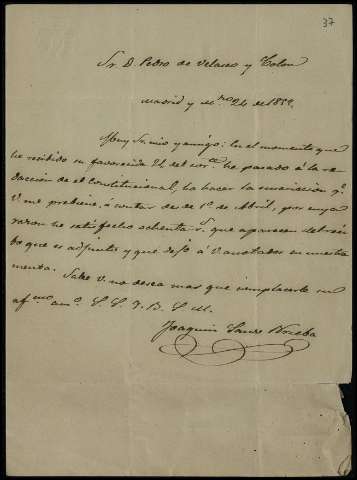 37
Sr. D. Pedro de Velasco y Colon
Madrid y 24 de 1852.
Muy Sr. mio y amigo: En el momento que
he recibido su favorecida 24 del cor.te he pasado á la re-
daccion de el Constitucional, á hacer la suscricion q.e
V. me previene, á contar desde 1.o de Abril, por cuya
razon he satisfecho ochenta r.s que aparecen del reci-
bo que es adjunto y que dejo á V. anotados en cuenta
Sabe V. no desea mas que complacerle su
af.mo am.o S. S. Q. B. S. M.
Joaquin